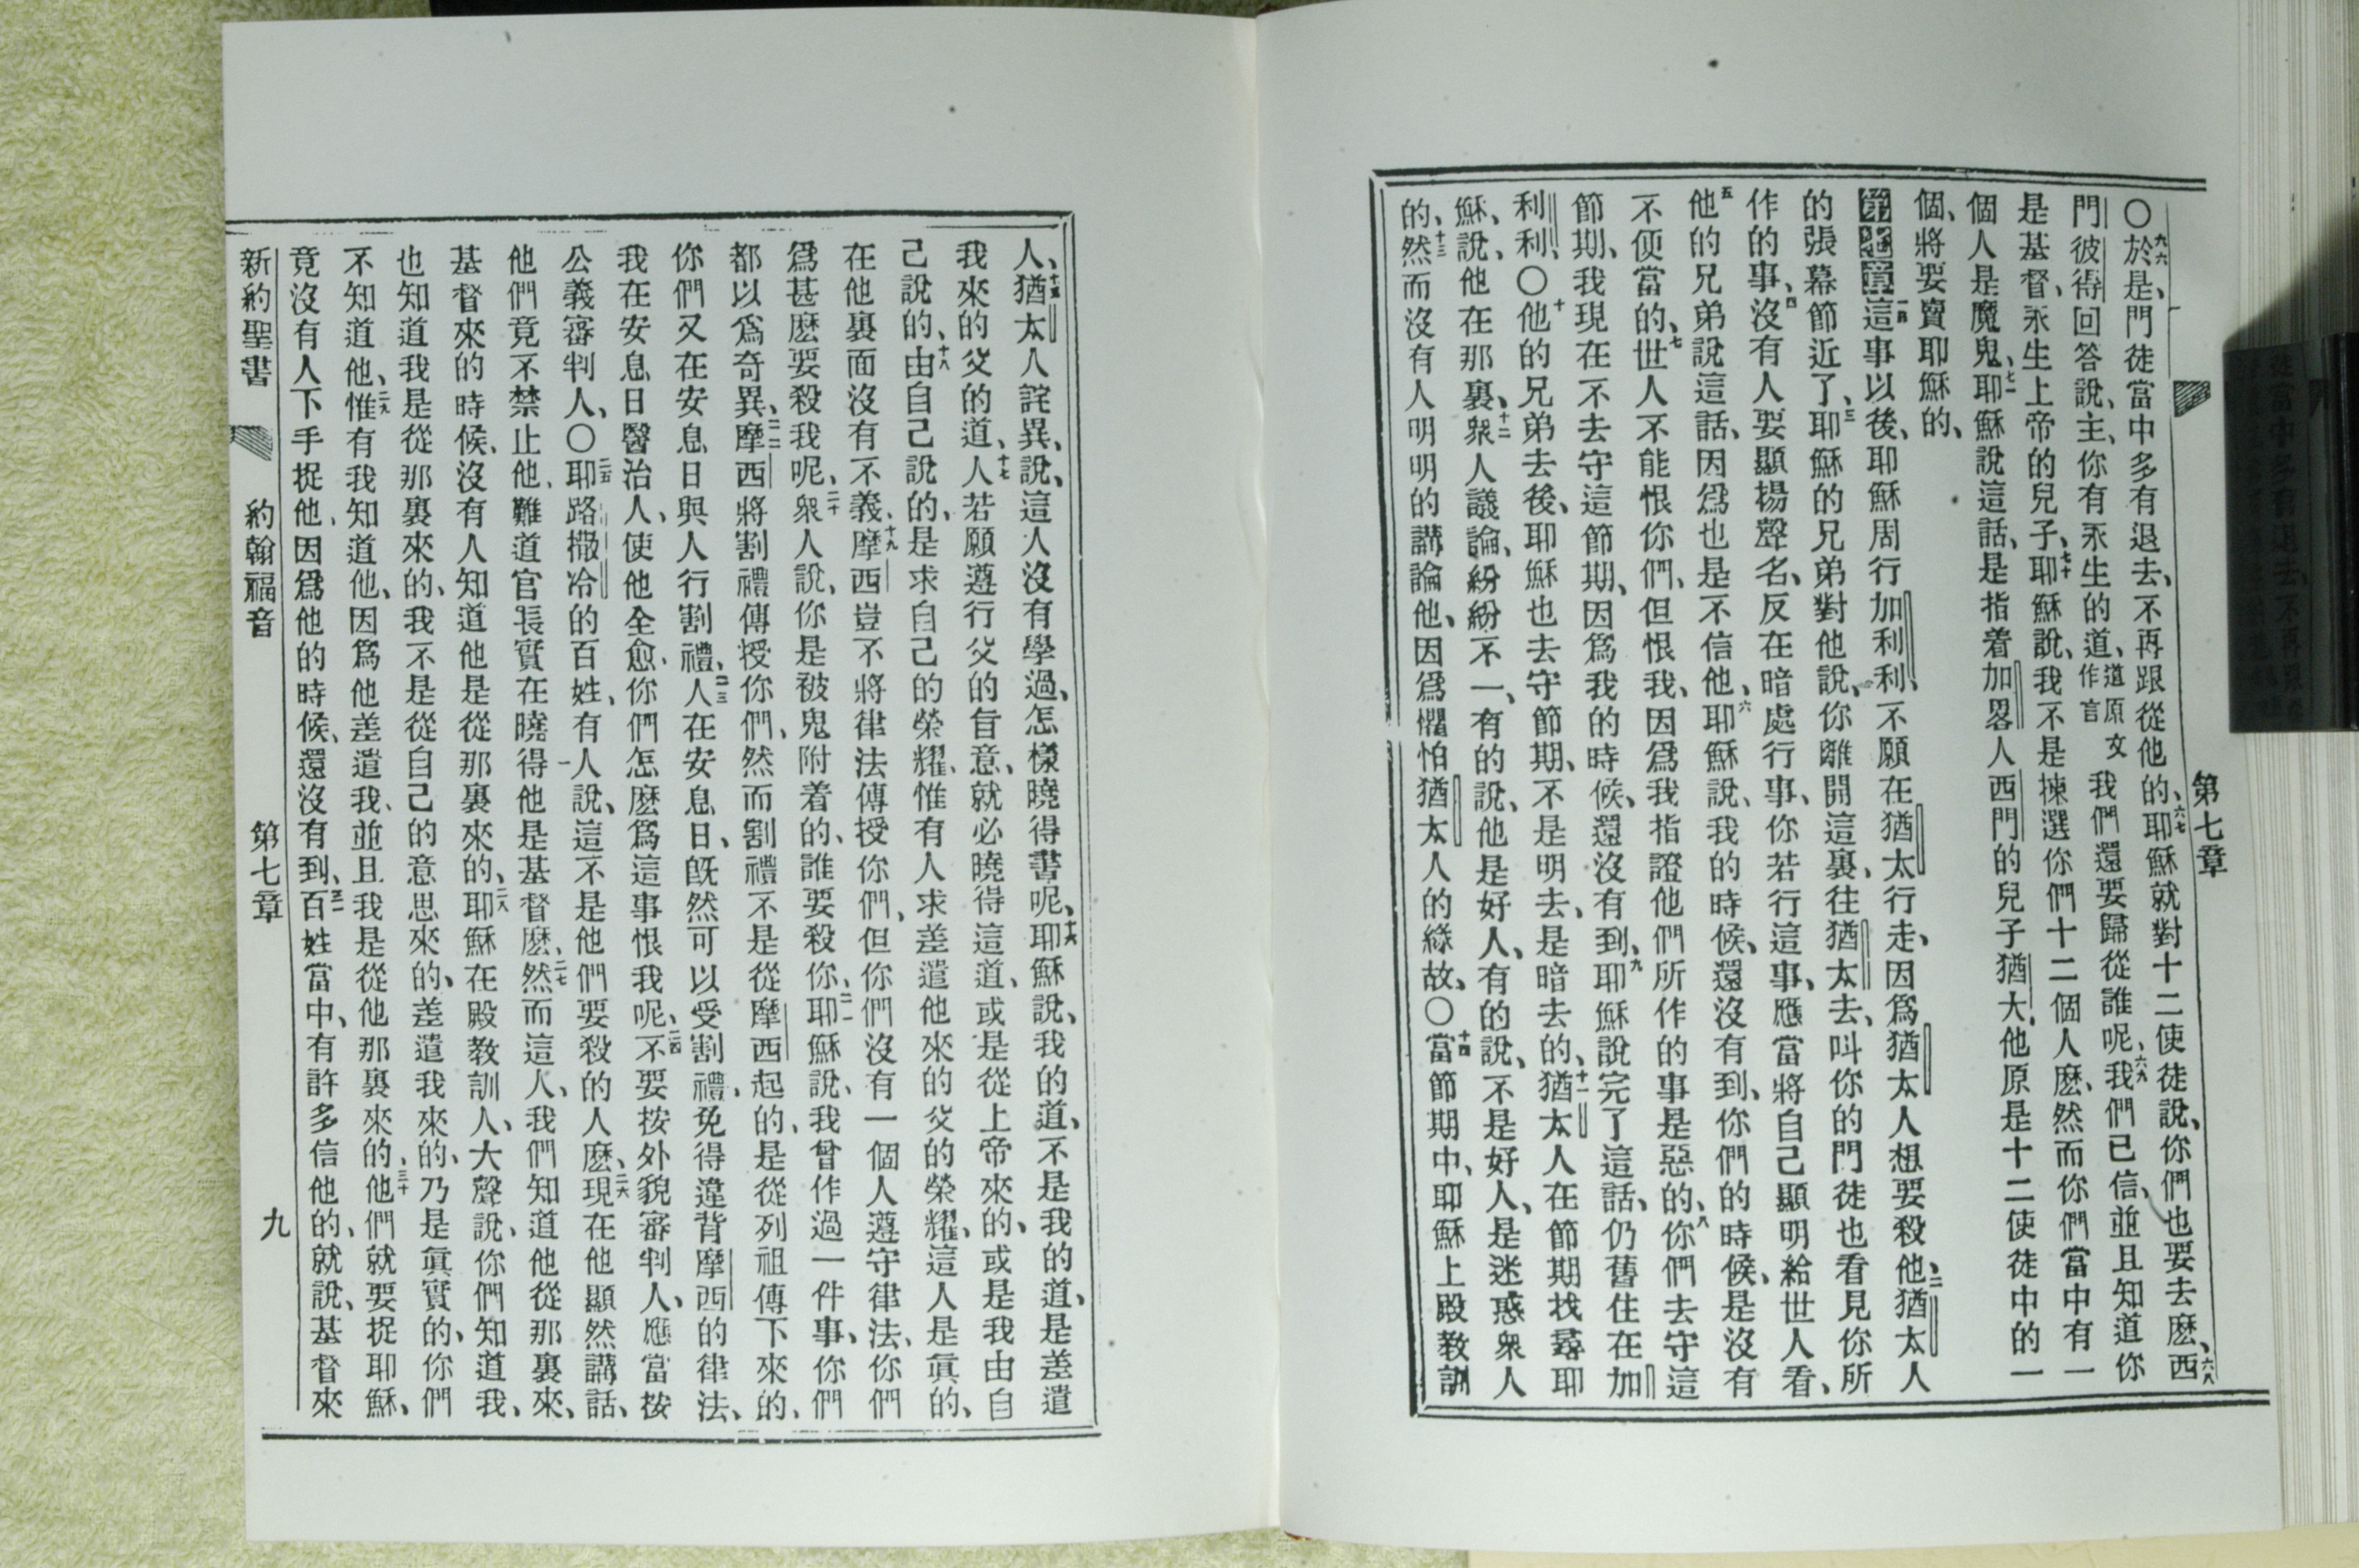 第七章
〇九六於是、門徒當中多有退去、不再跟從他的、六七耶穌就對十二使徒說、你們也要去麽、六八西
門彼得回答說、主、你有永生的道、道原文作言我們還要歸從誰呢、六九我們已信、並且知道你
是基督、永生上帝的兒子、七十耶穌說、我不是揀選你們十二個人麽、然而你們當中有一
個人是魔鬼、七一耶穌說這話、是指着加畧人西門的兒子猶大、他原是十二使徒中的一
個、將要賣耶穌的、
第七章一節這事以後、耶穌周行加利利、不願在猶太行走、因爲猶太人想要殺他、二猶太人
的張幕節近了、三耶穌的兄弟對他說、你離開這裏、往猶太去、叫你的門徒也看見你所
作的事、四沒有人要顯揚聲名、反在暗處行事、你若行這事、應當將自己顯明給世人看、
五他的兄弟說這話、因爲也是不信他、六耶穌說、我的時候、還沒有到、你們的時候、是沒有
不便當的、七世人不能恨你們、但恨我、因爲我指證他們所作的事是惡的、八你們去守這
節期、我現在不去守這節期、因爲我的時候、還沒有到、九耶穌說完了這話、仍舊住在加
利利、〇十他的兄弟去後、耶穌也去守節期、不是明去、是暗去的、十一猶太人在節期找尋耶
穌、說、他在那裏、十二衆人議論、紛紛不一、有的說、他是好人、有的說、不是好人、是迷惑衆人
的、十三然而沒有人明明的講論他、因爲懼怕猶太人的緣故、〇十四當節期中、耶穌上殿教訓
人、十五猶太人詫異、說、這人沒有學過、怎樣曉得書呢、十六耶穌說、我的道、不是我的道、是差遣
我來的父的道、十七人若願遵行父的旨意、就必曉得這道、或是從上帝來的、或是我由自
己說的、十八由自己說的、是求自己的榮耀、惟有人求差遣他來的父的榮耀、這人是眞的、
在他裏面沒有不義、十九摩西豈不將律法傳授你們、但你們沒有一個人遵守律法、你們
爲甚麽要殺我呢、二十衆人說、你是被鬼附着的、誰要殺你、二一耶穌說、我曾作過一件事、你們
都以爲奇異、二二摩西將割禮傳授你們、然而割禮不是從摩西起的、是從列祖傳下來的、
你們又在安息日與人行割禮、二三人在安息日、旣然可以受割禮、免得違背摩西的律法、
我在安息日醫治人、使他全愈、你們怎麽爲這事恨我呢、二四不要按外貌審判人、應當按
公義審判人、〇二五耶路撒冷的百姓、有人說、這不是他們要殺的人麽、二六現在他顯然講話、
他們竟不禁止他、難道官長實在曉得他是基督麽、二七然而這人、我們知道他從那裏來、
基督來的時候、沒有人知道他是從那裏來的、二八耶穌在殿教訓人、大聲說、你們知道我、
也知道我是從那裏來的、我不是從自己的意思來的、差遣我來的、乃是眞實的、你們
不知道他、二九惟有我知道他、因爲他差遣我、並且我是從他那裏來的、三十他們就要捉耶穌、
竟沒有人下手捉他、因爲他的時候、還沒有到、三一百姓當中、有許多信他的、就說、基督來
新約聖書　約翰福音　第七章　九